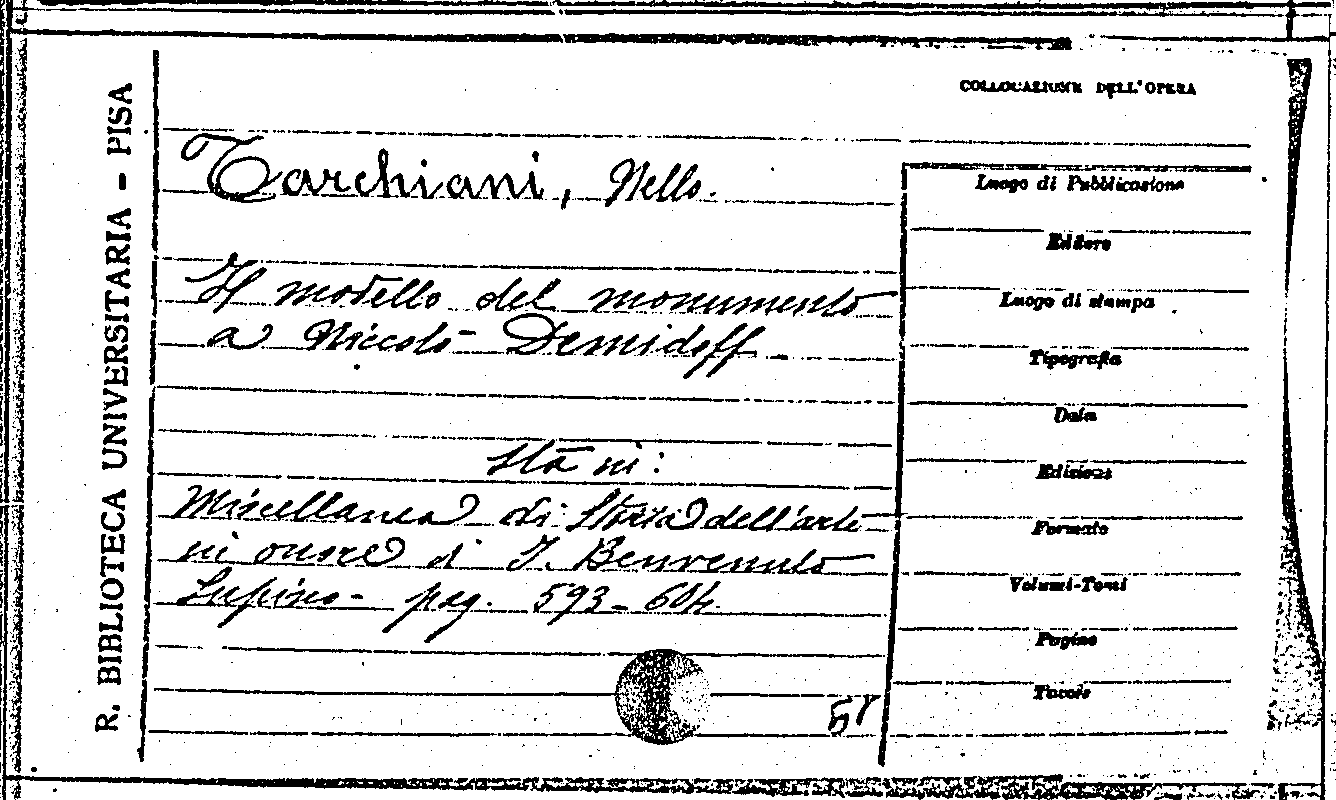 R. BIBLIOTECA UNIVERSITARIA - PISA
COLLOCAZIONE DELL'OPERA
Tarchiani, Nello.
Il modello del monumento
a Niccolò Demidoff
Sta in:
Miscellanea di Storia dell'arte
in onore di I. Benvenuto
Supino - pag. 593-604.
Luogo di Pubblicazione
Editore
Luogo di stampa
Tipografia
Data
Edizioni
Formato
Volumi-Tomi
Pagine
Tavole